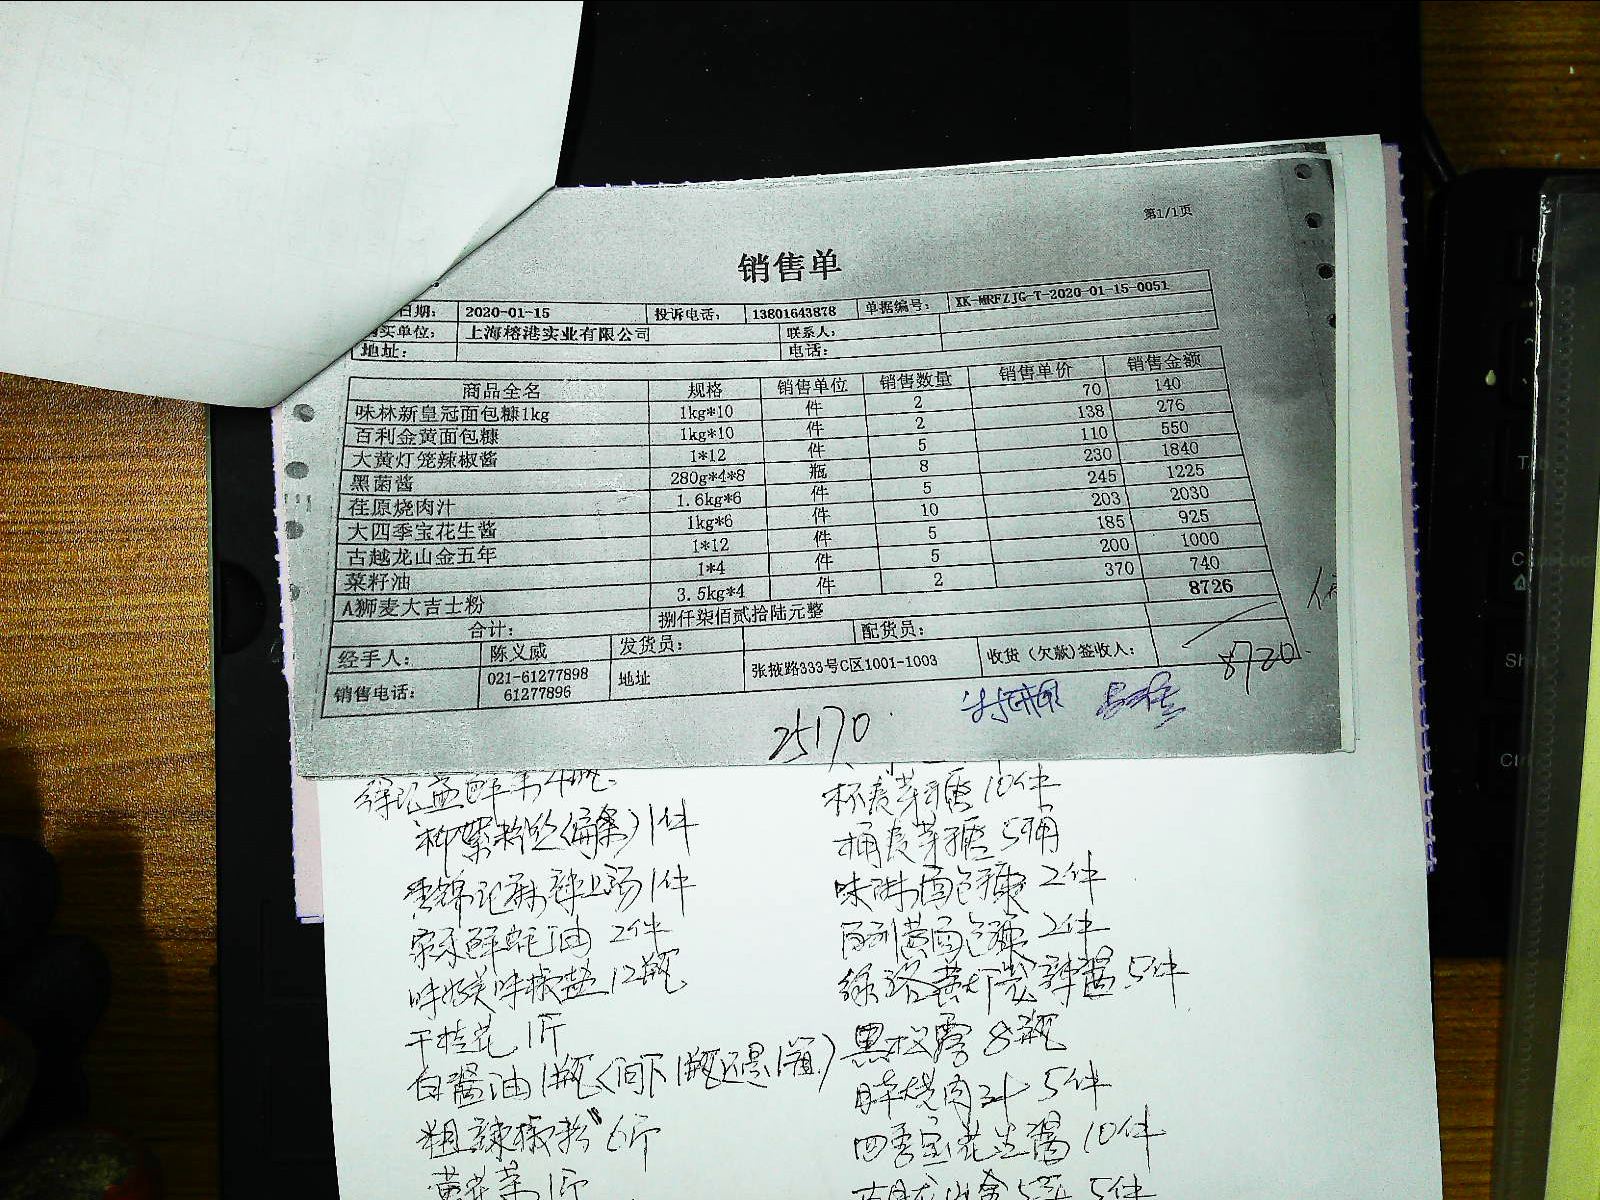 第1/1页
销售单
日期： 2020-01-15 投诉电话： 13801643878 单据编号： XK-MRFZJG-T-2020-01-15-0051
买单位： 上海榕港实业有限公司 联系人：
地址： 电话：
商品全名 规格 销售单位 销售数量 销售单价 销售金额
味林新皇冠面包糠1kg 1kg*10 件 2 70 140
百利金黄面包糠 1kg*10 件 2 138 276
大黄灯笼辣椒酱 1*12 件 5 110 550
黑菌酱 280g*4*8 瓶 8 230 1840
荏原烧肉汁 1.6kg*6 件 5 245 1225
大四季宝花生酱 1kg*6 件 10 203 2030
古越龙山金五年 1*12 件 5 185 925
菜籽油 1*4 件 5 200 1000
A狮麦大吉士粉 3.5kg*4 件 2 370 740
合计： 捌仟柒佰贰拾陆元整 8726
经手人： 陈义威 发货员： 配货员：
销售电话： 021-61277898 61277896 地址 张掖路333号C区1001-1003 收货（欠款)签收人：
8720.
25170.
1件
1件
2件
味好美味椒盐12瓶
干桂花 1斤
白酱油1瓶
粗辣椒粉 6斤
黄花菜 1斤
杯麦芽糖 10件
桶麦芽糖 5桶
味琳面包糠 2件
百利黄面包糠 2件
黄灯笼辣酱 5件
黑松露 8瓶
烧肉汁 5件
四季宝花生酱 10件
5件